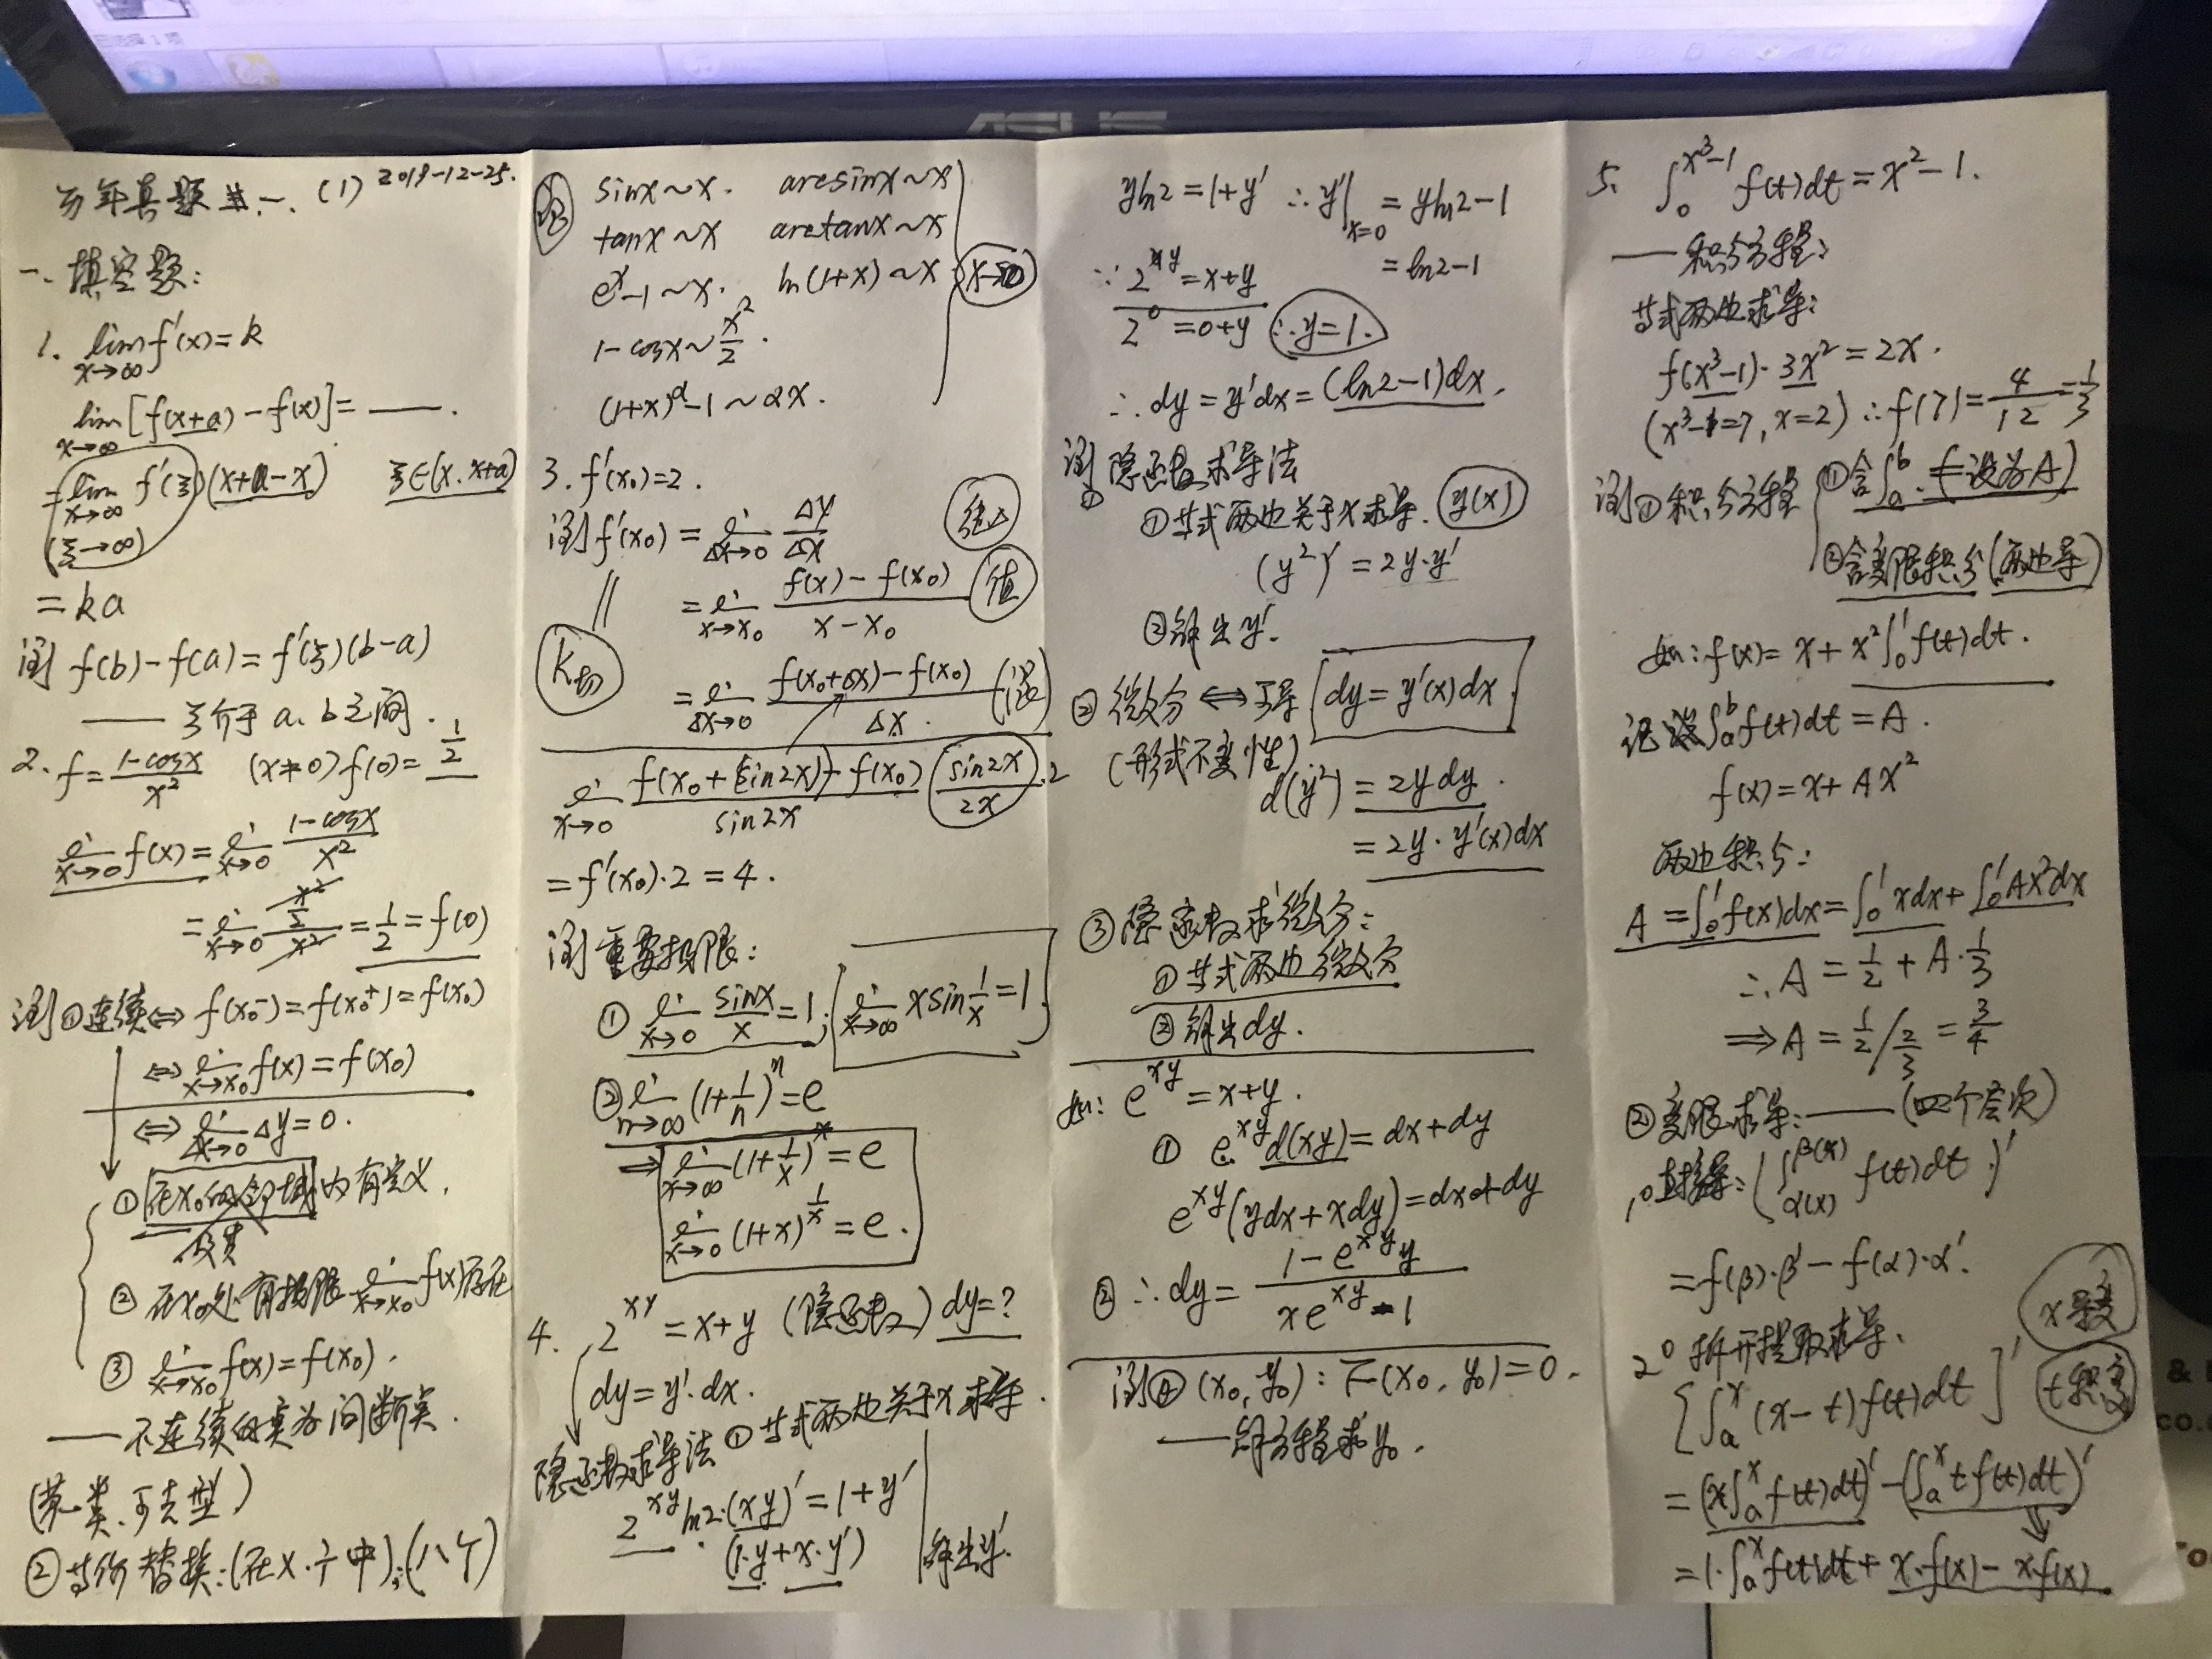 ASUS
历年真题 一、(1) 2019-12-25.
一、填空题:
1. lim x→∞ f'(x)=k
lim x→∞ [f(x+a)-f(x)]= ——.
= lim x→∞ (ξ→∞) f'(ξ)(x+a-x) ξ∈(x.x+a)
= ka
f(b)-f(a)=f'(ξ)(b-a)
—— ξ介于a、b之间.
2. f=(1-cosx)/x² (x≠0) f(0)=1/2
lim x→0 f(x) = lim x→0 (1-cosx)/x²
= lim x→0 (x²/2)/x² = 1/2 = f(0)
①连续⇔ f(x₀⁻)=f(x₀⁺)=f(x₀)
⇔ lim x→x₀ f(x)=f(x₀)
⇔ lim Δx→0 Δy=0.
①在x₀的邻域内有定义.
②在x₀处有极限 lim x→x₀ f(x)存在
③ lim x→x₀ f(x)=f(x₀).
——不连续的点为间断点.
(第一类、可去型)
②等价替换:(在×.÷中);(八个)
sinx~x. arcsinx~x
tanx~x arctanx~x
eˣ-1~x. ln(1+x)~x (x→0)
1-cosx~x²/2.
(1+x)^α-1~αx.
3. f'(x₀)=2.
f'(x₀) = lim Δx→0 Δy/Δx
= lim x→x₀ (f(x)-f(x₀))/(x-x₀) 值
K切 = lim Δx→0 (f(x₀+Δx)-f(x₀))/Δx.
lim x→0 (f(x₀+(sin2x))-f(x₀))/sin2x · (sin2x/2x)·2
= f'(x₀)·2=4.
重要极限:
① lim x→0 sinx/x=1; lim x→∞ xsin1/x=1
② lim n→∞ (1+1/n)ⁿ=e
⇒ lim x→∞ (1+1/x)ˣ=e
lim x→0 (1+x)^(1/x)=e.
4. 2^xy=x+y (隐函数) dy=?
dy=y'·dx.
隐函数求导法 ①等式两边关于x求导.
2^xy ln2·(xy)'=1+y'
(1·y+x·y') 解出y'.
yln2=1+y' ∴y'|x=0 = yln2-1
= ln2-1
∵ 2^xy=x+y
2⁰=0+y ∴y=1.
∴dy=y'dx=(ln2-1)dx.
① 隐函数求导法
①等式两边关于x求导. y(x)
(y²)'=2y·y'
②解出y'.
②微分⇔可导 dy=y'(x)dx
(形式不变性)
d(y²)=2ydy.
=2y·y'(x)dx
③隐函数求微分:
①等式两边微分
②解出dy.
如: e^xy=x+y.
① e^xy d(xy)=dx+dy
e^xy(ydx+xdy)=dx+dy
② ∴dy= (1-e^xy y)/(xe^xy-1)
④ (x₀,y₀): F(x₀,y₀)=0.
——解方程求y₀.
5. ∫₀^(x³-1) f(t)dt=x²-1.
——积分方程:
等式两边求导:
f(x³-1)·3x²=2x.
(x³-1=7, x=2) ∴f(7)=4/12=1/3
①积分方程 ①含∫ₐᵇ. (设为A)
②含变限积分(两边导)
如: f(x)=x+x²∫₀¹f(t)dt.
记 ∫ₐᵇf(t)dt=A.
f(x)=x+Ax²
两边积分:
A=∫₀¹f(x)dx=∫₀¹xdx+∫₀¹Ax²dx
∴A=1/2+A·1/3
⇒A=1/2 / 2/3=3/4
②变限求导:——(四个层次)
1⁰ 直接导: (∫α(x)^β(x) f(t)dt.)'
=f(β)·β'-f(α)·α'.
2⁰ 拆开提取求导. x导变
[∫ₐˣ(x-t)f(t)dt]' t积变
=(x∫ₐˣf(t)dt)'-(∫ₐˣtf(t)dt)'
=1·∫ₐˣf(t)dt+x·f(x)-xf(x)